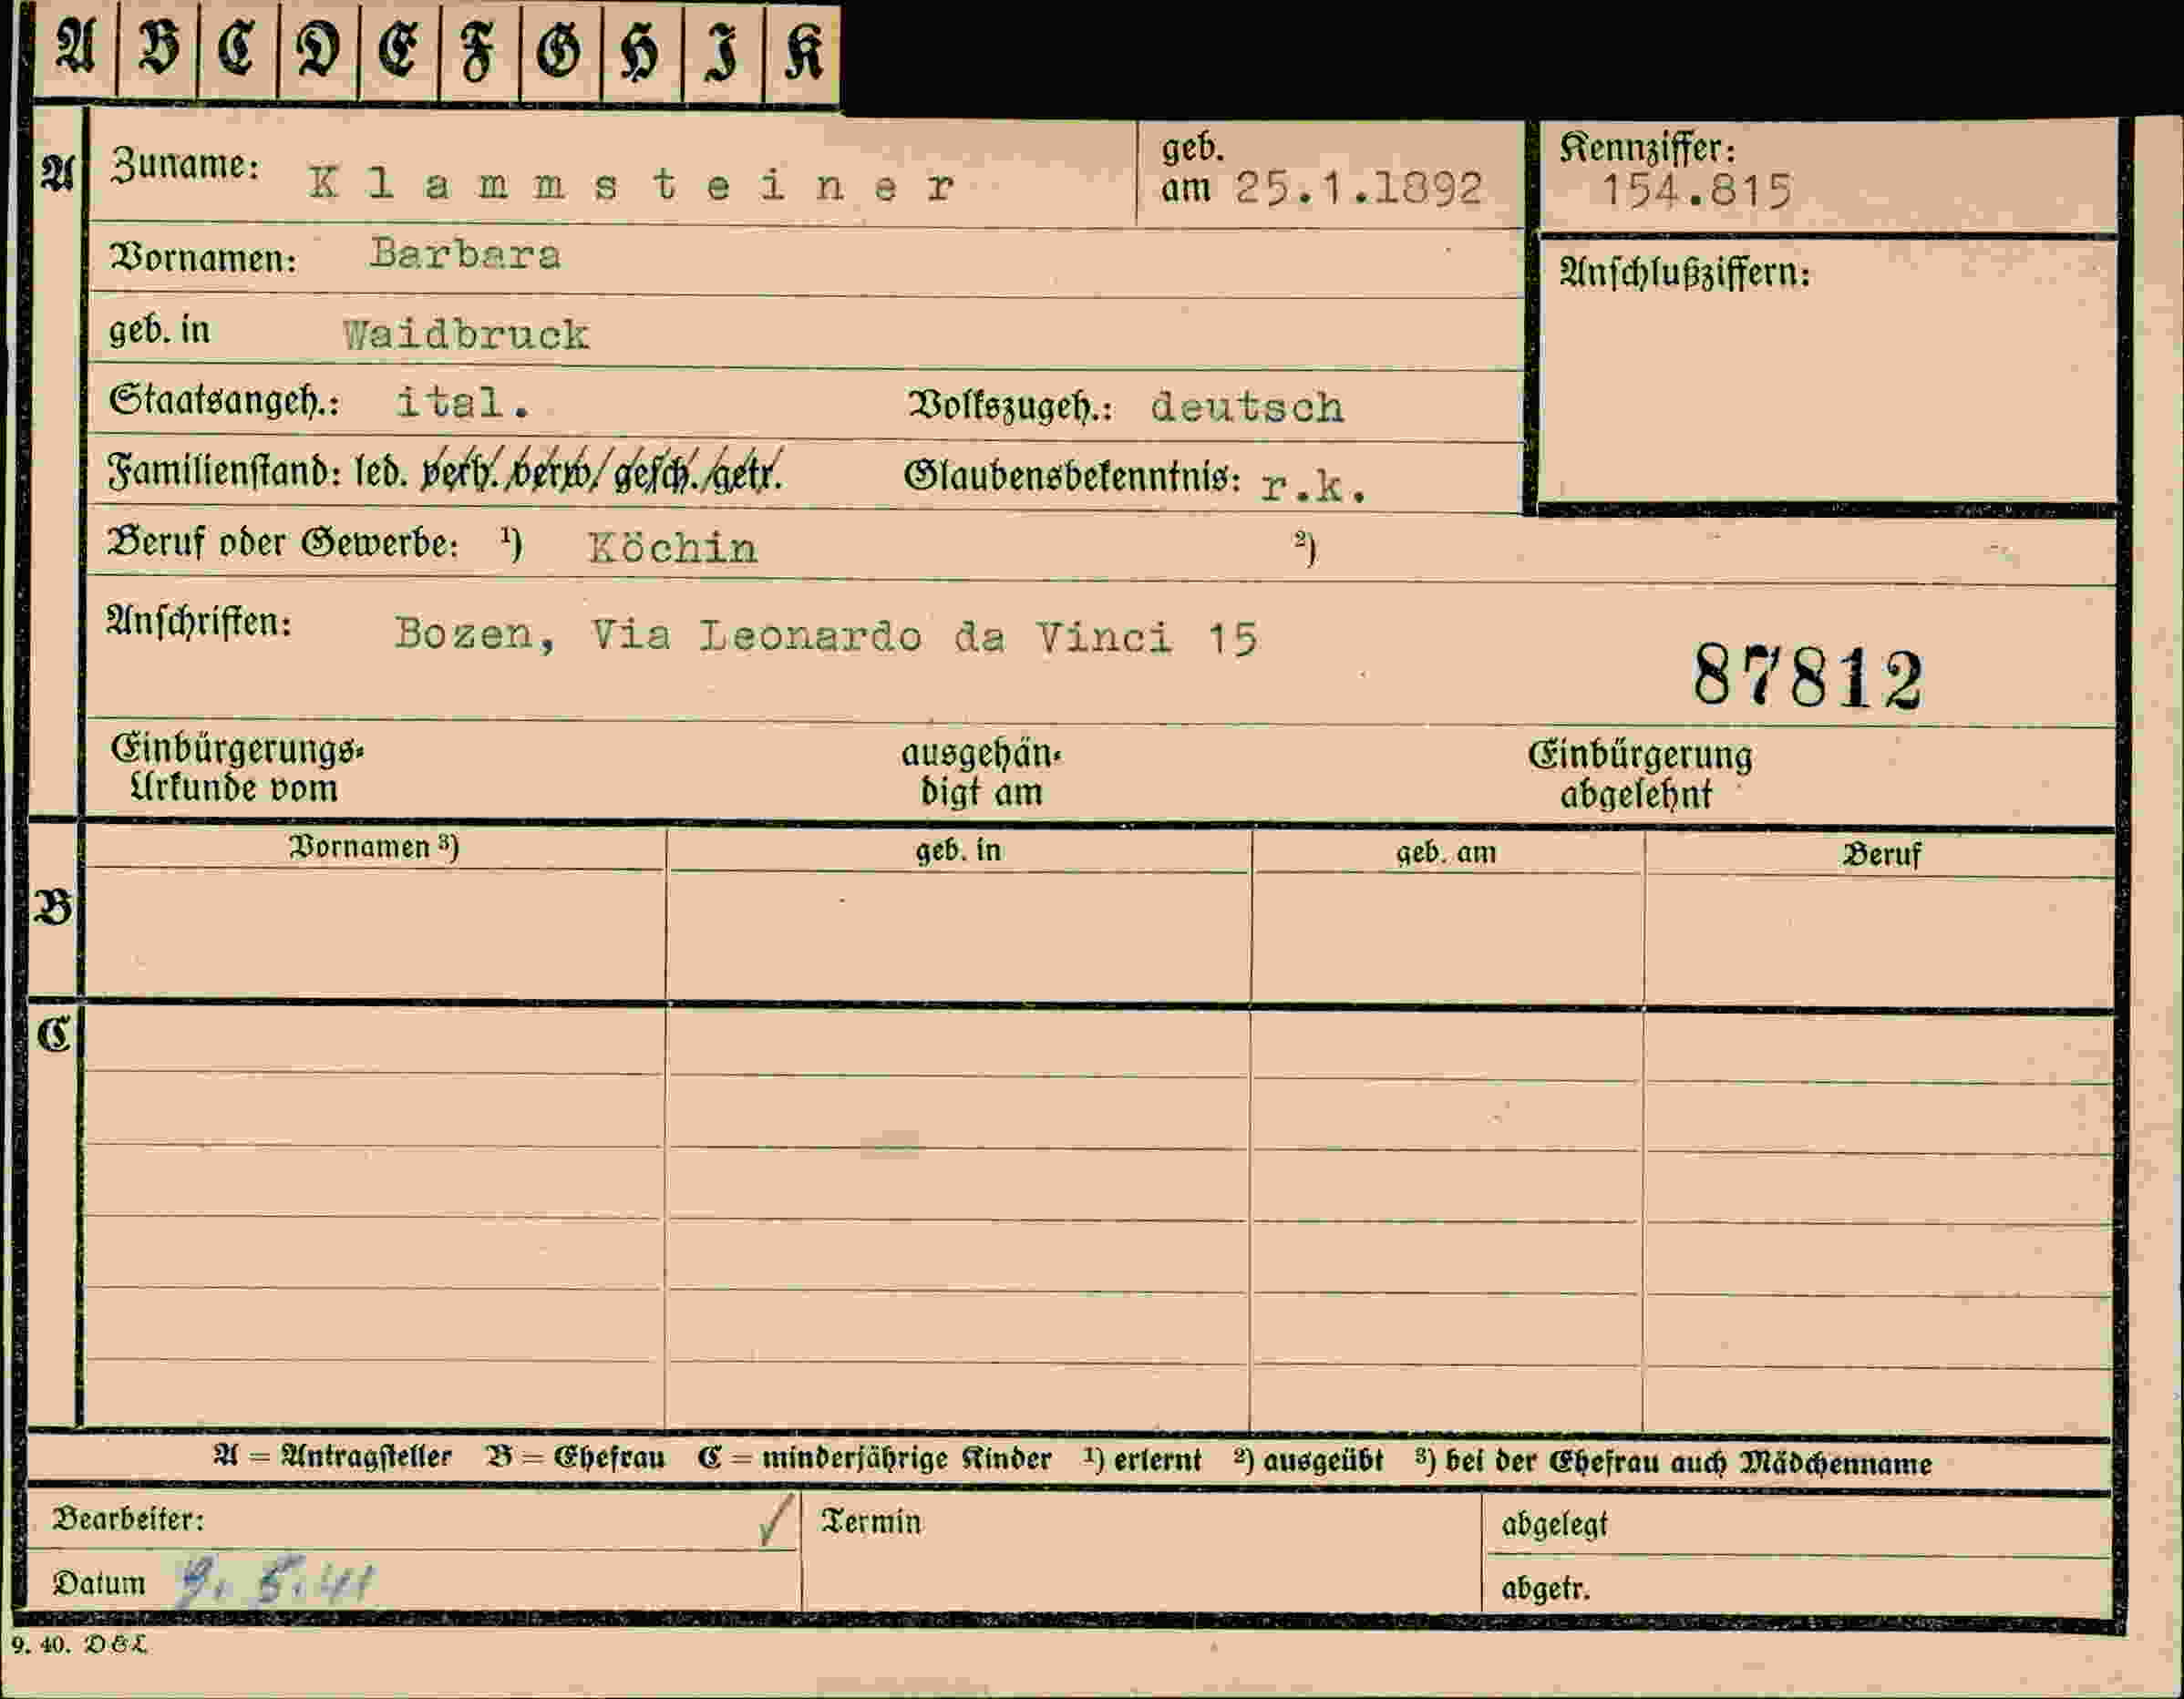 A B C D E F G H I K
A Zuname: Klammsteiner geb. am 25.1.1892 Kennziffer: 154.815
Vornamen: Barbara Anschlußziffern:
geb. in Waidbruck
Staatsangeh.: ital. Volkszugeh.: deutsch
Familienstand: led. verh. verw. gesch. getr. Glaubensbekenntnis: r.k.
Beruf oder Gewerbe: 1) Köchin 2)
Anschriften: Bozen, Via Leonardo da Vinci 15
87812
Einbürgerungs-Urkunde vom ausgehändigt am Einbürgerung abgelehnt
Vornamen 3) geb. in geb. am Beruf
B
C
A = Antragsteller B = Ehefrau C = minderjährige Kinder 1) erlernt 2) ausgeübt 3) bei der Ehefrau auch Mädchenname
Bearbeiter: ✓ Termin abgelegt
Datum 9. 5. 41 abgetr.
9. 40. D&L